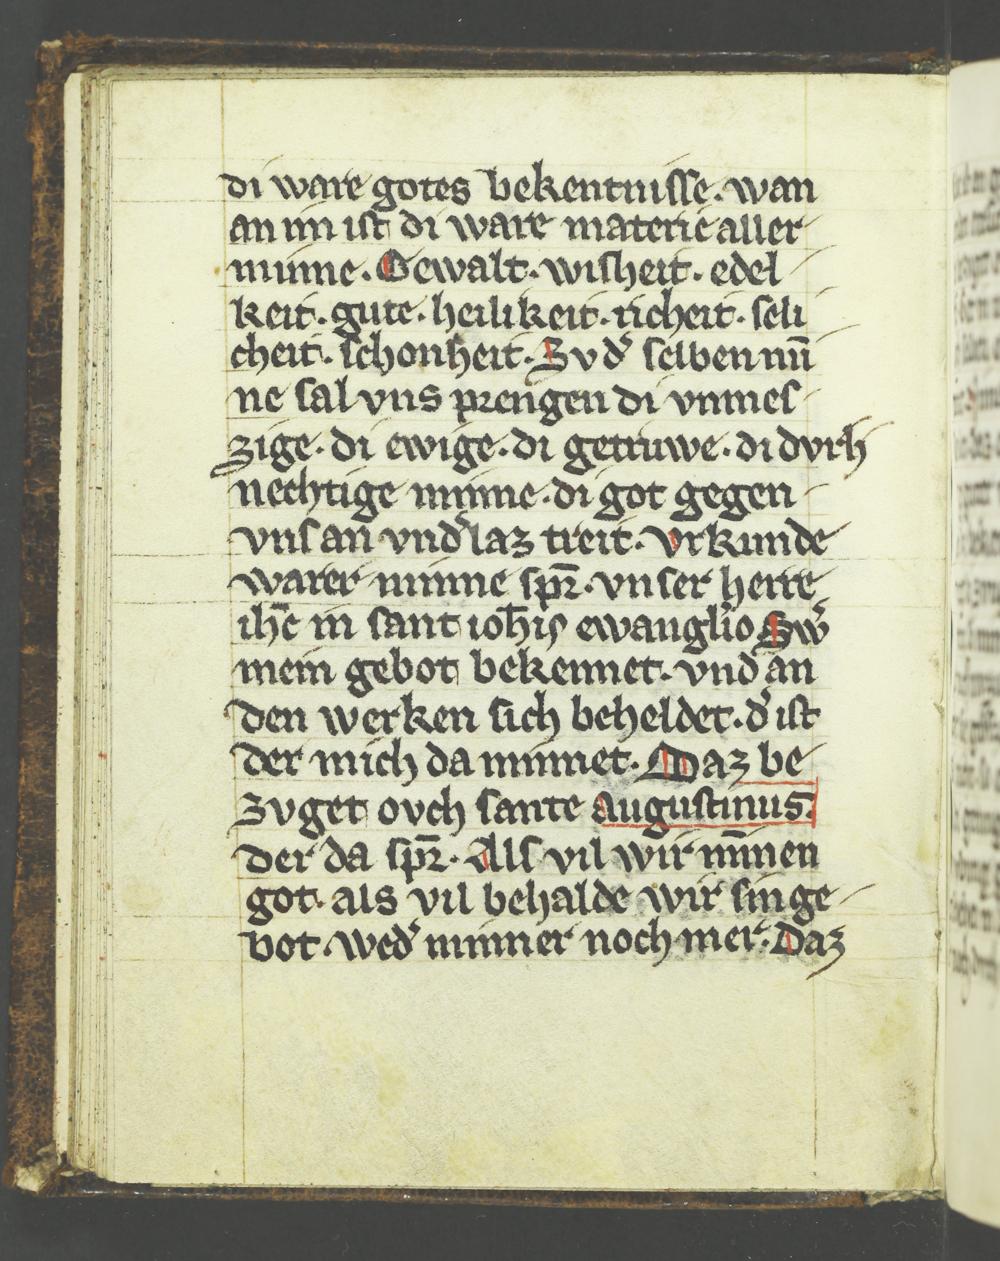 di ware gotes bekentnisse. wan
an im ist di ware materie aller
minne. Gewalt. wisheit. edel
keit. gute. heilikeit. richeit. seli
cheit. schonheit. Zv d᷑ selben mi̅
ne sal vns prengen di vnmes
zige. di ewige. di getruwe. di dvrh
nechtige minne. di got gegen
vns an vnd᷑laz treit. Vrkunde
warer minne spr̅. vnser herre
ih̅c in sant ioh̅is ewanglio Sw᷑
mein gebot bekennet. vnd an
den werken sich beheldet. d᷑ ist
der mich da minnet. Daz be
zvget ovch sante Augustinus.
der da spr̅. Als vil wir mi̅nen
got. als vil behalde wir sin ge
bot. wed᷑ minner noch mer. Daz